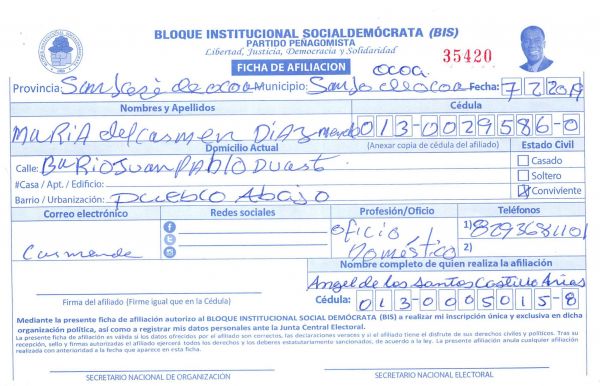 BLOQUE INSTITUCIONAL SOCIALDEMÓCRATA (BIS)
PARTIDO PEÑAGOMISTA
Libertad, Justicia, Democracia y Solidaridad
FICHA DE AFILIACION
35420
Provincia: San José de ocoa Municipio: San Jo de ocoa ocoa Fecha: 7/2/2019
Nombres y Apellidos
Cédula
MaRiA del Carmen DiAZ 013-0029586-0
Domicilio Actual
(Anexar copia de cédula del afiliado)
Estado Civil
Calle: BaRio Juan PAblo Duart
Casado
#Casa / Apt. / Edificio:
Soltero
Barrio / Urbanización: Pueblo Abajo
Conviviente
Correo electrónico
Redes sociales
Profesión/Oficio
Teléfonos
oficio Doméstico
1) 8293681101
2)
Nombre completo de quien realiza la afiliación
Angel de los Santos Castillo Arias
Firma del afiliado (Firme igual que en la Cédula)
Cédula: 013-0005015-8
Mediante la presente ficha de afiliación autorizo al BLOQUE INSTITUCIONAL SOCIAL DEMÓCRATA (BIS) a realizar mi inscripción única y exclusiva en dicha
organización política, así como a registrar mis datos personales ante la Junta Central Electoral.
La presente ficha de afiliación es válida si los datos ofrecidos por el afiliado son correctos, las declaraciones veraces y si el afiliado tiene el disfrute de sus derechos civiles y políticos. Tras su
recepción, sello y firmas autorizadas el afiliado ejercerá todos los derechos y los deberes estatutariamente sancionados, de acuerdo a la ley. La presente afiliación anula cualquier afiliación
realizada con anterioridad a la fecha que aparece en esta ficha.
SECRETARIO NACIONAL DE ORGANIZACIÓN
SECRETARIO NACIONAL ELECTORAL